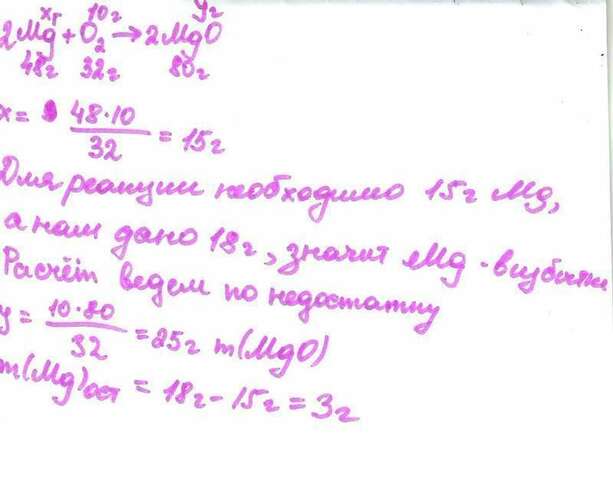 xг 10г yг
2Mg + O₂ → 2MgO
48г 32г 80г
x = 48·10 / 32 = 15г
Для реакции необходимо 15г Mg,
а нам дано 18г, значит Mg - в избытке
Расчёт ведем по недостатку
y = 10·80 / 32 = 25г m(MgO)
m(Mg)ост = 18г - 15г = 3г